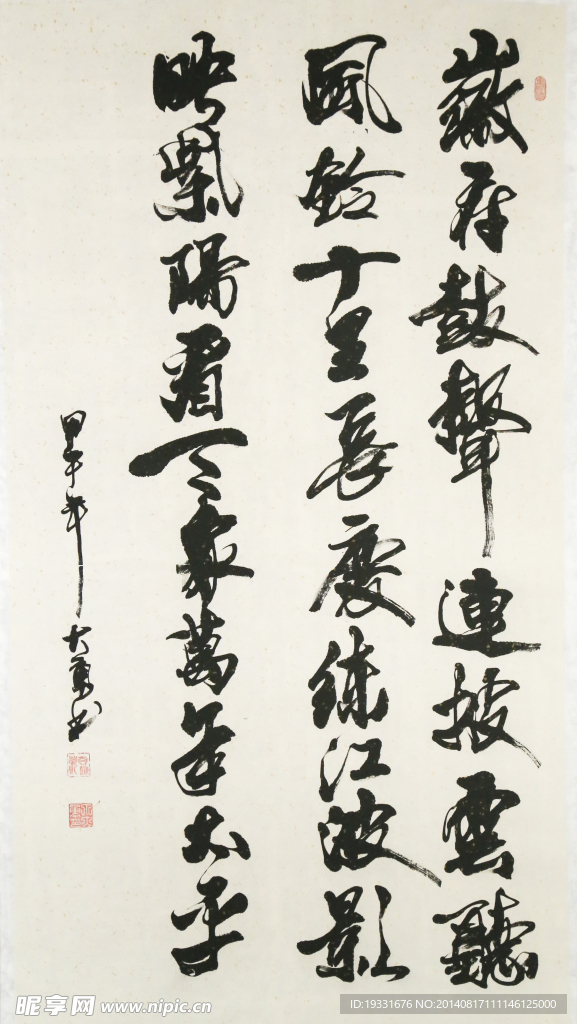 徽府鼓聲連披雲聽
風鈴十里長慶練江波影
映紫陽看天家萬年太平
甲午年大書
昵享网 www.nipic.cn
ID:19331676 NO:20140817111146125000